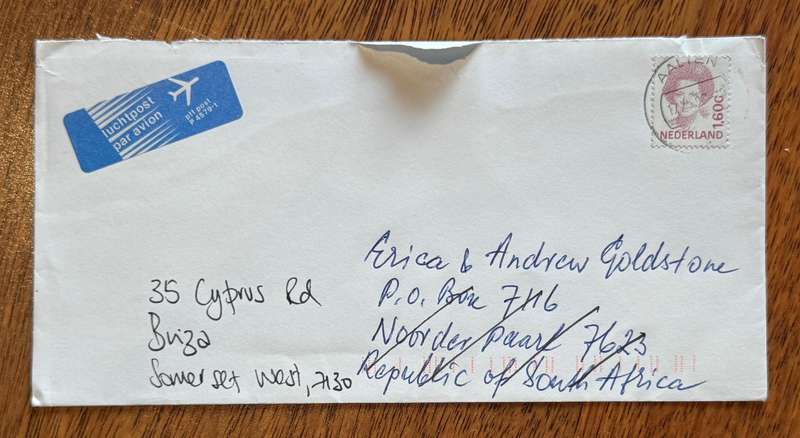 luchtpost
par avion
ptt post
P 4579-1
AALTEN
1.60G
NEDERLAND
Erica & Andrew Goldstone
P.O. Box 7116
Noorder Paarl 7623
Republic of South Africa
35 Cyprus Rd
Briza
Somerset West, 7130